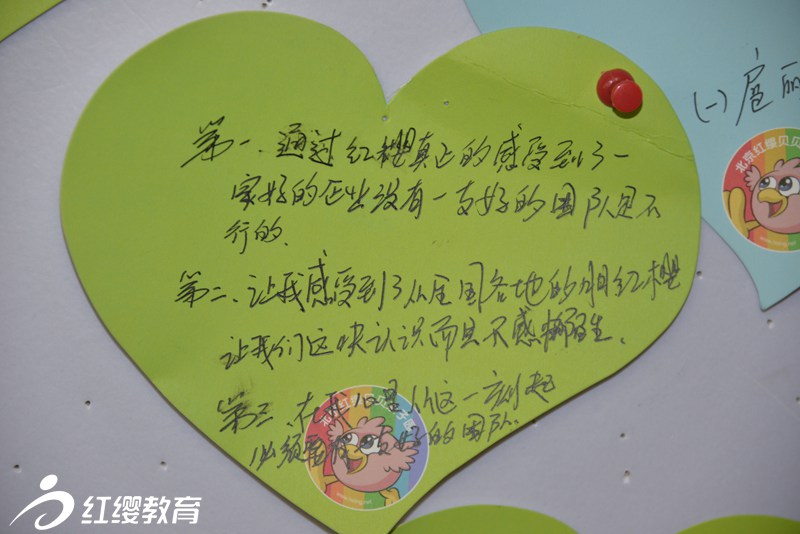 第一、通过红樱真正的感受到了一
家好的企业没有一支好的团队是不
行的.
第二、让我感受到了从全国各地的
红樱
让我们这快认识而且不感
生.
第三、在我心里从这一刻起
必须
好的团队.
(一)
北京红缨贝贝
红缨教育